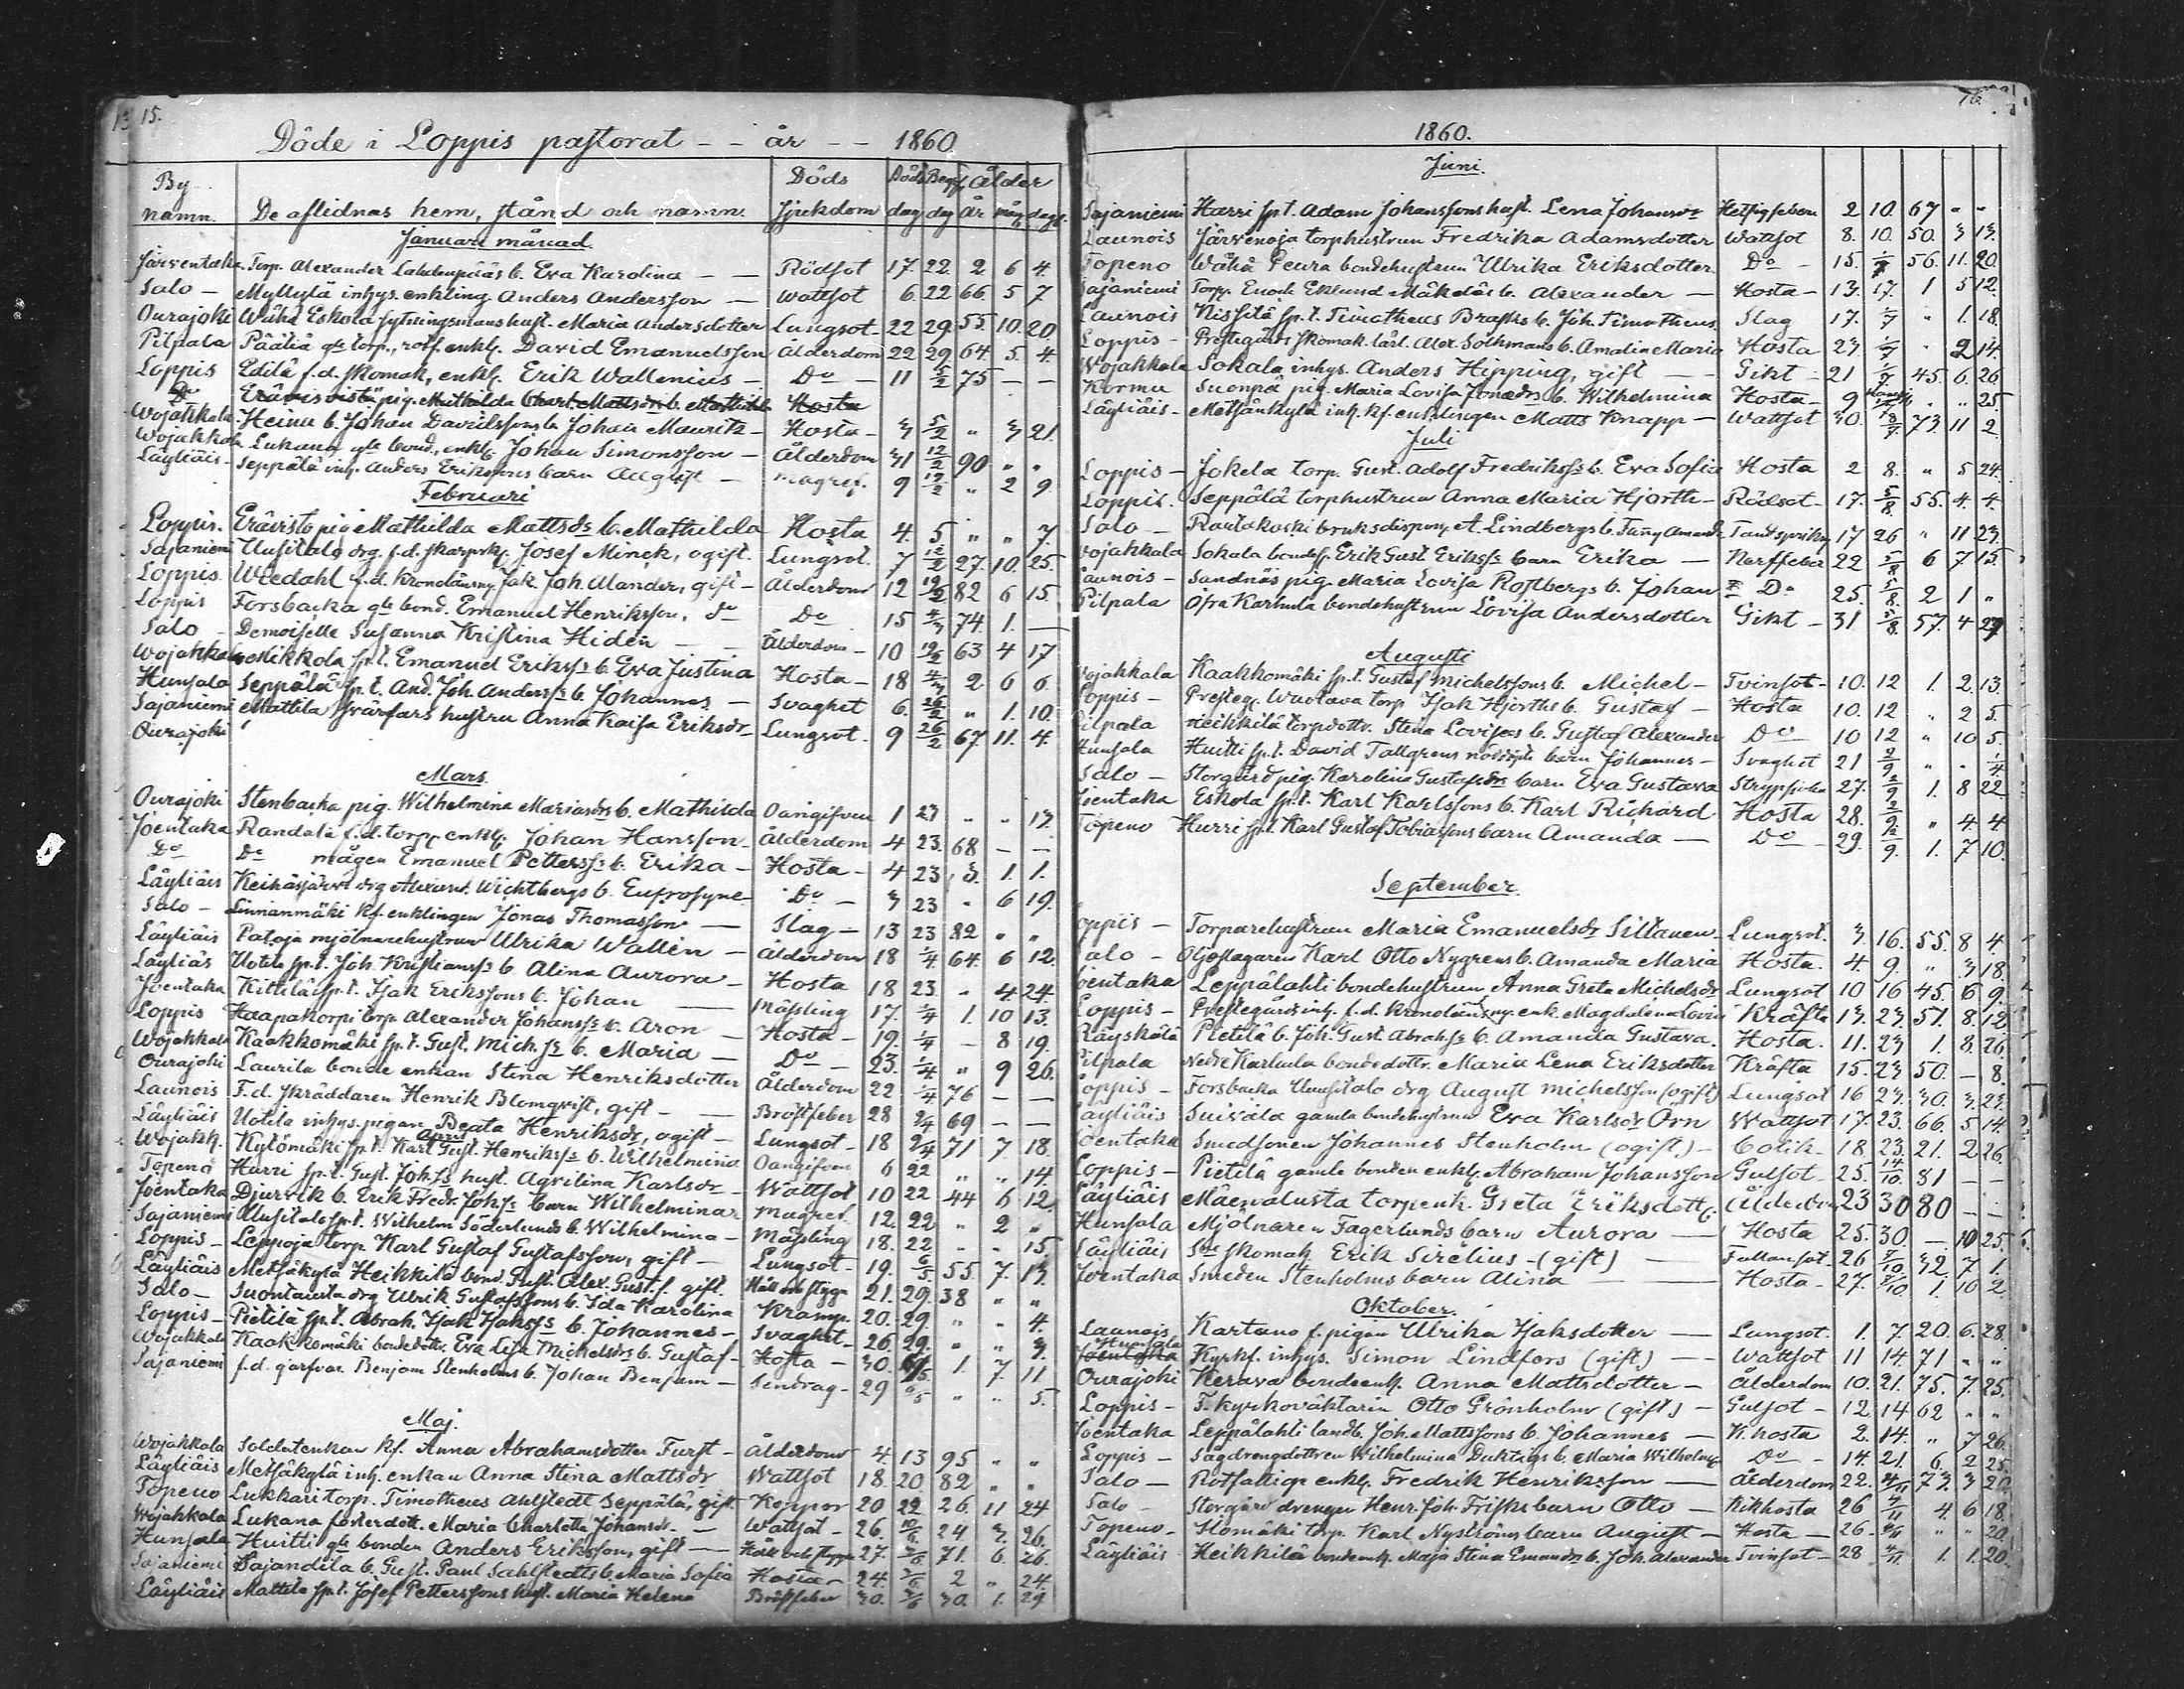 15.
Döde i Loppis pastorat - - år - - 1860
By namn. De aflidnas hem, stånd och namn. Döds sjukdom Döds dag Begr. dag Ålder år mån. dag.
Januari månad.
Järventaka Torp. Alexander Lahdenpääs b. Eva Karolina - - Rödsot 17. 22. 2 6 4.
Salo - Myllylä inhys. enkling Anders Andersson - Wattsot 6. 22 66. 5 7
Ourajoki Wähä Eskola sytningsmans hust. Maria Andersdotter Lungsot 22 29. 55. 10. 20
Pilpala Pääliä gle torp., rotf. enkl. David Emanuelsson Ålderdom 22 29 64. 5. 4.
Loppis Edilä f.d. skomak. enkl. Erik Wallenius - Do - 11 5/2 75 - -
Do Erävisto pig. Mathilda Mattsdrs b. Mathilda Hosta
Wojakkala Heinu b. Johan Davidssons b. Johan Mauritz - Hosta - 3 5/2 " 3 21.
Wojakkala Lukana gle bond. enkl. Johan Simonsson - Ålderdom 31 12/2 90 " "
Läyliäis - Seppälä inh. Anders Erikssons barn August - Magref. 9 12/2 " 2 9.
Februari
Loppis. Erävisto pig Mathilda Mattsdrs b. Mathilda Hosta 4. 5 " " 7.
Sajaniemi Uusitalo drg. f.d. skarpsk. Josef Minck, ogift. Lungsot. 7 12/2 27. 10. 25.
Loppis Wredahl f.d. Kronolänsm. Jak. Joh. Alander, gift - Ålderdom 12 19/2 82 6 15.
Loppis Forsbacka gle bond. Emanuel Henriksson, do Do 15 4/3 74. 1. -
Salo - Demoiselle Susanna Kristina Hidén - - Ålderdom - 10 19/2 63 4 17
Wojakkala Mikkola sp.t. Emanuel Erikss:s b. Eva Justina Hosta - 18 4/3 2 6 6.
Hunsala Seppälä sp.t. And. Joh. Anderss:s b. Johannes - Svaghet 6. 26/2 " 1. 10.
Sajaniemi Mattila svärfars hustru Anna Kaisa Eriksdr Lungsot. 9 26/2 67. 11. 4.
Ourajoki
Mars.
Ourajoki Stenbacka pig. Wilhelmina Mariasdrs b. Mathilda Oangifven 1 23 " " 13.
Joentaka Randala f.d. torp. enkl. Johan Hansson - Ålderdom 4 23. 68 - -
Do Do mågen Emanuel Petterss:s b. Erika - Hosta - 4 23 3. 1. 1.
Läyliäis Keihäsjärvi drg Alexand. Wichtbergs b. Eufrosyne - Do - 3 23 " 6 19.
Salo - Linnanmäki kf. enklingen Jonas Thomasson - Slag - 13 23 82 " "
Läyliäis Pataja mjölnarehustrun Ulrika Wallén - Ålderdom 18 1/4 64. 6 12.
Läyliäs Uotila sp.t. Joh. Kristianss:s b. Alina Aurora - Hosta 18 23. " 4 24.
Joentaka Kittilä sp.t. Isak Erikssons b. Johan - Mässling 17. 1/4 1. 10 13.
Loppis Haapakorpi torp. Alexander Johanss:s b. Aron - Hosta - 19. 1/4 - 8 19.
Wojakkala Kaakkomäki sp.t. Gust. Mich.s:s b. Maria - Do - 23. 1/4 " 9 26.
Ourajoki Laurila bonde enkan Stina Henriksdotter Ålderdom 22 1/4 76 - -
Launois F.d. skräddaren Henrik Blomqvist, gift - - Bröstfeber 28 9/4 69 - -
Läyliäis Uotila inhys. pigan Beata Henriksdr, ogift - Lungsot - 18 9/4 71 7. 18.
April
Wojakk. Kylömäki sp.t. Karl Gust. Henrikss:s b. Wilhelmina Oangifven 6 22 " " 14.
Topeno Hurri sp.t. Gust. Joh.s:s hust. Agrilina Karlsdr - Wattsot 10 22 44 6 12.
Joentaka Djurvik b. Erik Fredr. Joh.s:s barn Wilhelmina Magref. 12. 22 " 2 "
Sajaniemi Uusitalo sp.t. Wilhelm Söderlunds b. Wilhelmina - Mässling 18. 22 " - 15.
Loppis - Leppoja torp. Karl Gustaf Gustafsson, gift - Lungsot - 19. 6/5 55. 7. 13.
Läyliäis Metsäkylä Heikkilä bond. Gust. Alex. Gust.s. gift Håll och stygn 21. 29. 38 " "
Salo - Suontausta drg Ulrik Gustafssons b. Ida Karolina Kramp. 20. 29. " " 4.
Loppis - Pietilä sp.t. Abrah. Isak Isakss:s b. Johannes - Svaghet - 26. 29. " " 3.
Wojakkala Kaakkomäki bondedottr. Eva Lisa Michelsdrs b. Gustaf - Hosta - 30. 6/5 1. 7. 11
Sajaniemi f.d. garfvar. Benjam Stenholms b. Johan Benjam - Sendrag - 29 6/5 " " 5.
Maj.
Wojakkala Soldatenkan kf. Anna Abrahamsdotter Furst - Ålderdom 4. 13 95 " "
Läyliäis Metsäkylä inh. enkan Anna Stina Mattsdr Wattsot 18. 20. 82 " "
Topeno Lukkari torp. Timotheus Ahlstedt Seppälä, gift Koppor 20 22 26. 11 24
Wojakkala Lukana fosterdott. Maria Charlotta Johansdr - Wattsot - 26. 10/6 24 3. 26.
Hunsala Huitti gle bonden Anders Eriksson, gift - Håll och stygn 27. 3/6 71. 6. 26.
Sajaniemi Sajandila b. Gust. Paul Sahlstedts b. Maria Sofia Hosta - 24. 3/6 2 " 24.
Läyliäis Mattila sp.t. Josef Petterssons hust. Maria Helena Bröstfeber 30. 3/6 30. 1. 29.
16.
1860.
Juni.
Sajaniemi Harri sp.t. Adam Johanssons hust. Lena Johansdr Hetsigfeber 2 10. 67 " "
Launois Järvenoja torphustrun Fredrika Adamsdotter Wattsot 8. 10. 50. 3 13.
Topeno Wähä Peura bondehustrun Ulrika Eriksdotter Do - 15. 1/7 56. 11. 20.
Sajaniemi Torp. Enok Eklund Mäkeläs b. Alexander - Hosta - 13. 17. 1 5 12.
Launois Nissilä sp.t. Timotheus Brasks b. Joh. Timotheus Slag 17. 1/7 " 1. 18.
Loppis - Prestegårds skomak. lärl. Alex. Solkmans b. Amalia Maria Hosta 23 1/7 " 2 14.
Wojakkala Sokala inhys. Anders Hipping, gift - Gikt - 21 1/7 45. 6. 26
Kormu Suonpä pig. Maria Lovisa Jonædrs b. Wilhelmina Hosta - 9 " " 25.
Läyliäis - Metsänkylä inh. kf. enklingen Matts Knapp - Wattsot 30. 8/7 73. 11 2.
Juli
Loppis - Jokela torp. Gust. Adolf Fredrikss:s b. Eva Sofia Hosta 2 8. " 5 24.
Loppis. Seppälä torphustrun Anna Maria Hjorth - Rödsot - 17. 5/8 55. 4. 4.
Salo - Rautakoski bruksdispon. A. Lindbergs b. Fanny Amanda Tandsprickn. 17 26 " 11 23.
Wojakkala Sokala bondes. Erik Gust. Erikss:s barn Erika - Nerffeber 22 5/8 6 7 15.
Launois - Sandnäs pig. Maria Lovisa Rostbergs b. Johan Do 25. 5/8 2 1 "
Pilpala Öfra Karhula bondehustrun Lovisa Andersdotter Gikt - 31 5/8 57. 4 27
Augusti
Wojakkala Kaakkomäki sp.t. Gustaf Michelssons b. Michel - Tvinsot - 10. 12 1. 2. 13.
Loppis - Presteg. Wuolava torp. Isak Hjorths b. Gustaf - Hosta 10. 12 " 2 5.
Pilpala Heikkilä torpdottr. Stina Lovisas b. Gustaf Alexander Do 10 12 " 10 5.
Hunsala Huitti sp.t. David Tallgrens nöddöpte barn Johannes - Svaghet 21 2/9 " " 1/4
Salo - Storgård pig. Karolina Gustafsdrs barn Eva Gustava Strypsjuka 27. 2/9 1. 8 22
Joentaka Eskola sp.t. Karl Karlssons b. Karl Richard Hosta 28. 2/9 " 4. 4
Topeno Hurri sp.t. Karl Gustaf Tobiassons barn Amanda - Do - 29. 9. 1. 7 10.
September.
Loppis - Torparehustrun Maria Emanuelsdr Siltanen - Lungsot. 3. 16. 55. 8 4
Salo - Ogiftagaren Karl Otto Nygrens b. Amanda Maria Hosta. 4. 9. " 3 18.
Joentaka Leppälahti bondehustrun Anna Greta Michelsdr Lungsot 10 16 45. 6 9.
Loppis - Prestegårds inh. f.d. kronolänsm. enk. Magdalena Lovisa Kräfta 13. 23. 51. 8. 12
Räyskälä Pietilä b. Joh. Gust. Abrah.s:s b. Amanda Gustava. Hosta. 11. 23 1. 8. 26.
Pilpala Nedre Karhula bondedottr. Maria Lena Eriksdotter Kräfta 15. 23 50. - 8.
Loppis - Forsbacka Uusitalo drg August Michelsson (ogift) Lungsot 16 23. 30. 3. 23.
Läyliäis Suivala gamla bondehustrun Eva Karlsdr Örn Wattsot 17. 23. 66. 5 14.
Joentaka Smedsonen Johannes Stenholm (ogift) - Colik - 18 23. 21. 2 26.
Loppis - Pietilä gamle bonden enkl. Abraham Johansson Gulsot 25. 14/10 81 - -
Läyliäis Mäenalusta torpenk. Greta Eriksdott. Ålderdom 23 30 80 - -
Hunsala Mjölnaren Fagerlunds barn Aurora - Hosta 25. 30 - 10 25.
Läyliäis Skomak. Erik Sirélius - (gift) - Fallansot. 26 7/10 32 7 1.
Joentaka Smeden Stenholms barn Alina - Hosta - 27. 7/10 1. 10 2.
Oktober.
Launois Kartano f. pigan Ulrika Isaksdotter - Lungsot. 1. 7. 20. 6. 28.
Hunsala Joentaka Kyrkf. inhys. Simon Lindfors (gift) - Wattsot 11 14. 71 " "
Ourajoki Kerava bondeenk. Anna Mattsdotter - Ålderdom 10. 21. 75. 7. 25.
Loppis - F. kyrkoväktarin Otto Grönholm (gift) - Gulsot - 12 14 62 " "
Joentaka Leppälahti landb. Joh. Mattssons b. Johannes - K. hosta 2. 14. " 7 26.
Loppis - Sågdrengdottren Wilhelmina Duktigs b. Maria Wilhelm. Do - 14. 21. 6. 2 25.
Salo - Rotfattige enkl. Fredrik Henriksson - Ålderdom 22. 4/11 73. 3 20.
Salo - Storgård drengen Henr. Joh. Frisks barn Otto - Kikhosta 26 4/11 4 6 18.
Topeno - Slomäki torp. Karl Nyströms barn August - Hosta - 26. " " 20.
Läyliäis - Heikkilä bondeenk. Maja Stina Emandrs b. Joh. Alexander Tvinsot - 28 4/11 1. 1. 20.